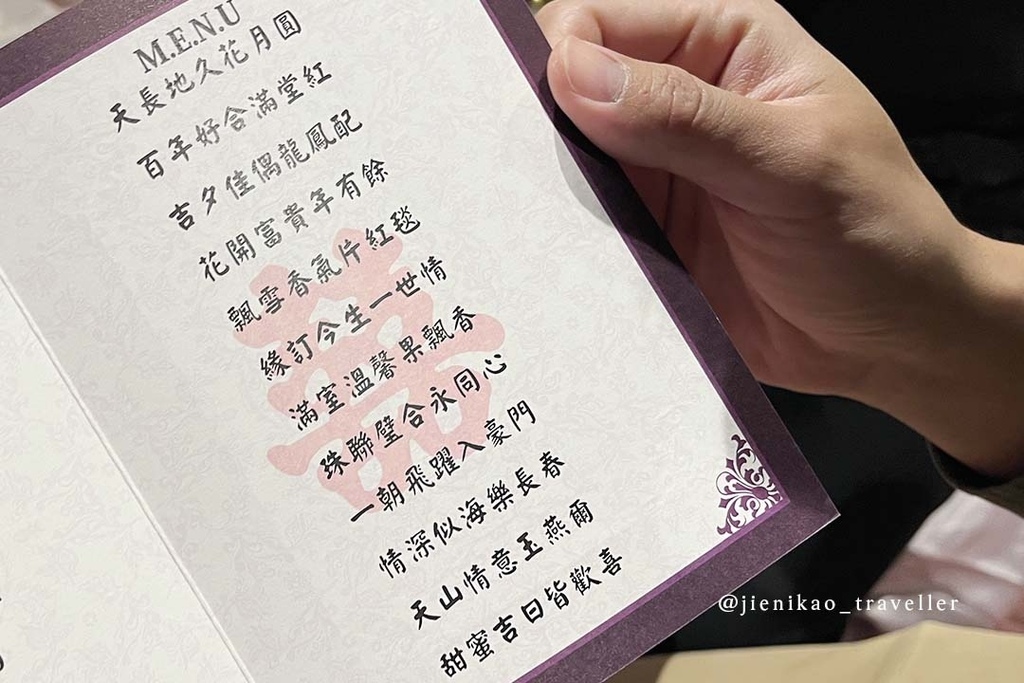 M.E.N.U
天長地久花月圓
百年好合滿堂紅
吉夕佳偶龍鳳配
花開富貴年有餘
飄雪香氣片紅毯
緣訂今生一世情
滿室溫馨果飄香
珠聯璧合永同心
一朝飛躍入豪門
情深似海樂長春
天山情意玉燕爾
甜蜜吉日皆歡喜
囍
@jienikao_traveller